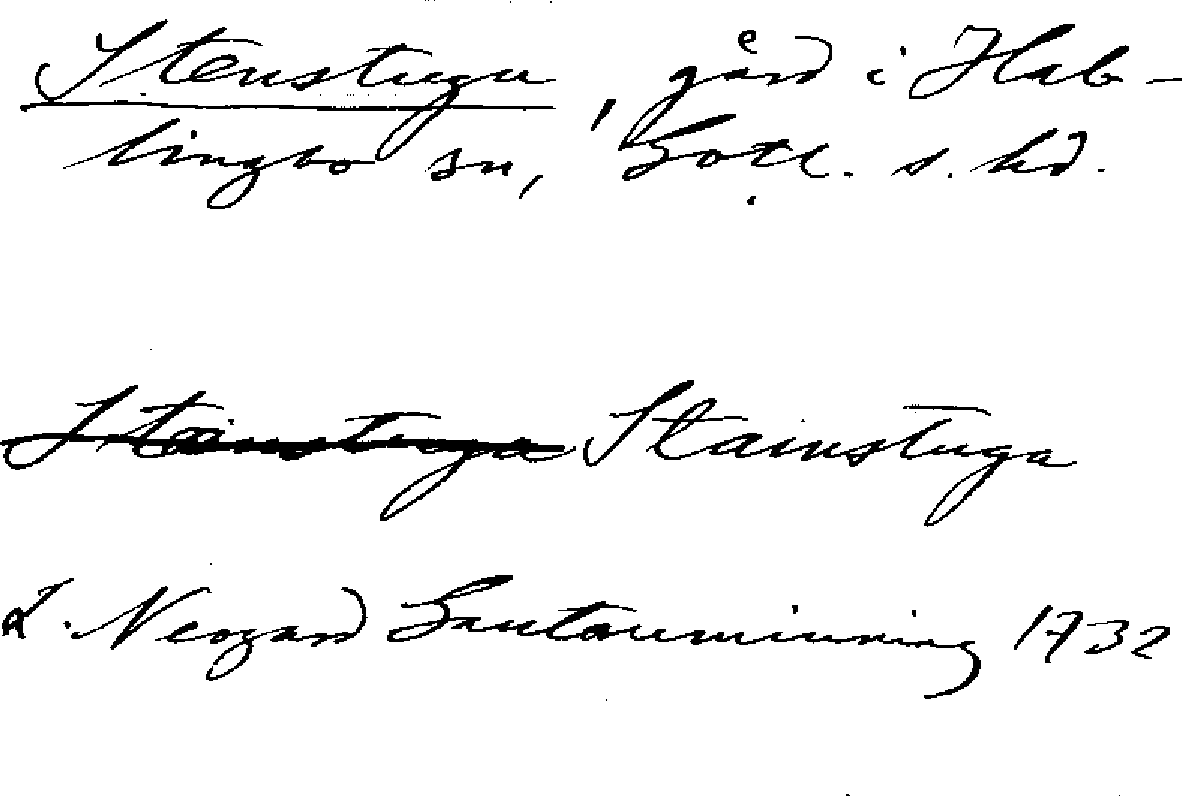 Stenstuga, gård i Hab-
lingbo sn, Gotl. s. hd.
Stainstuga Stainstuga
L. Neogard Gautauminning 1732